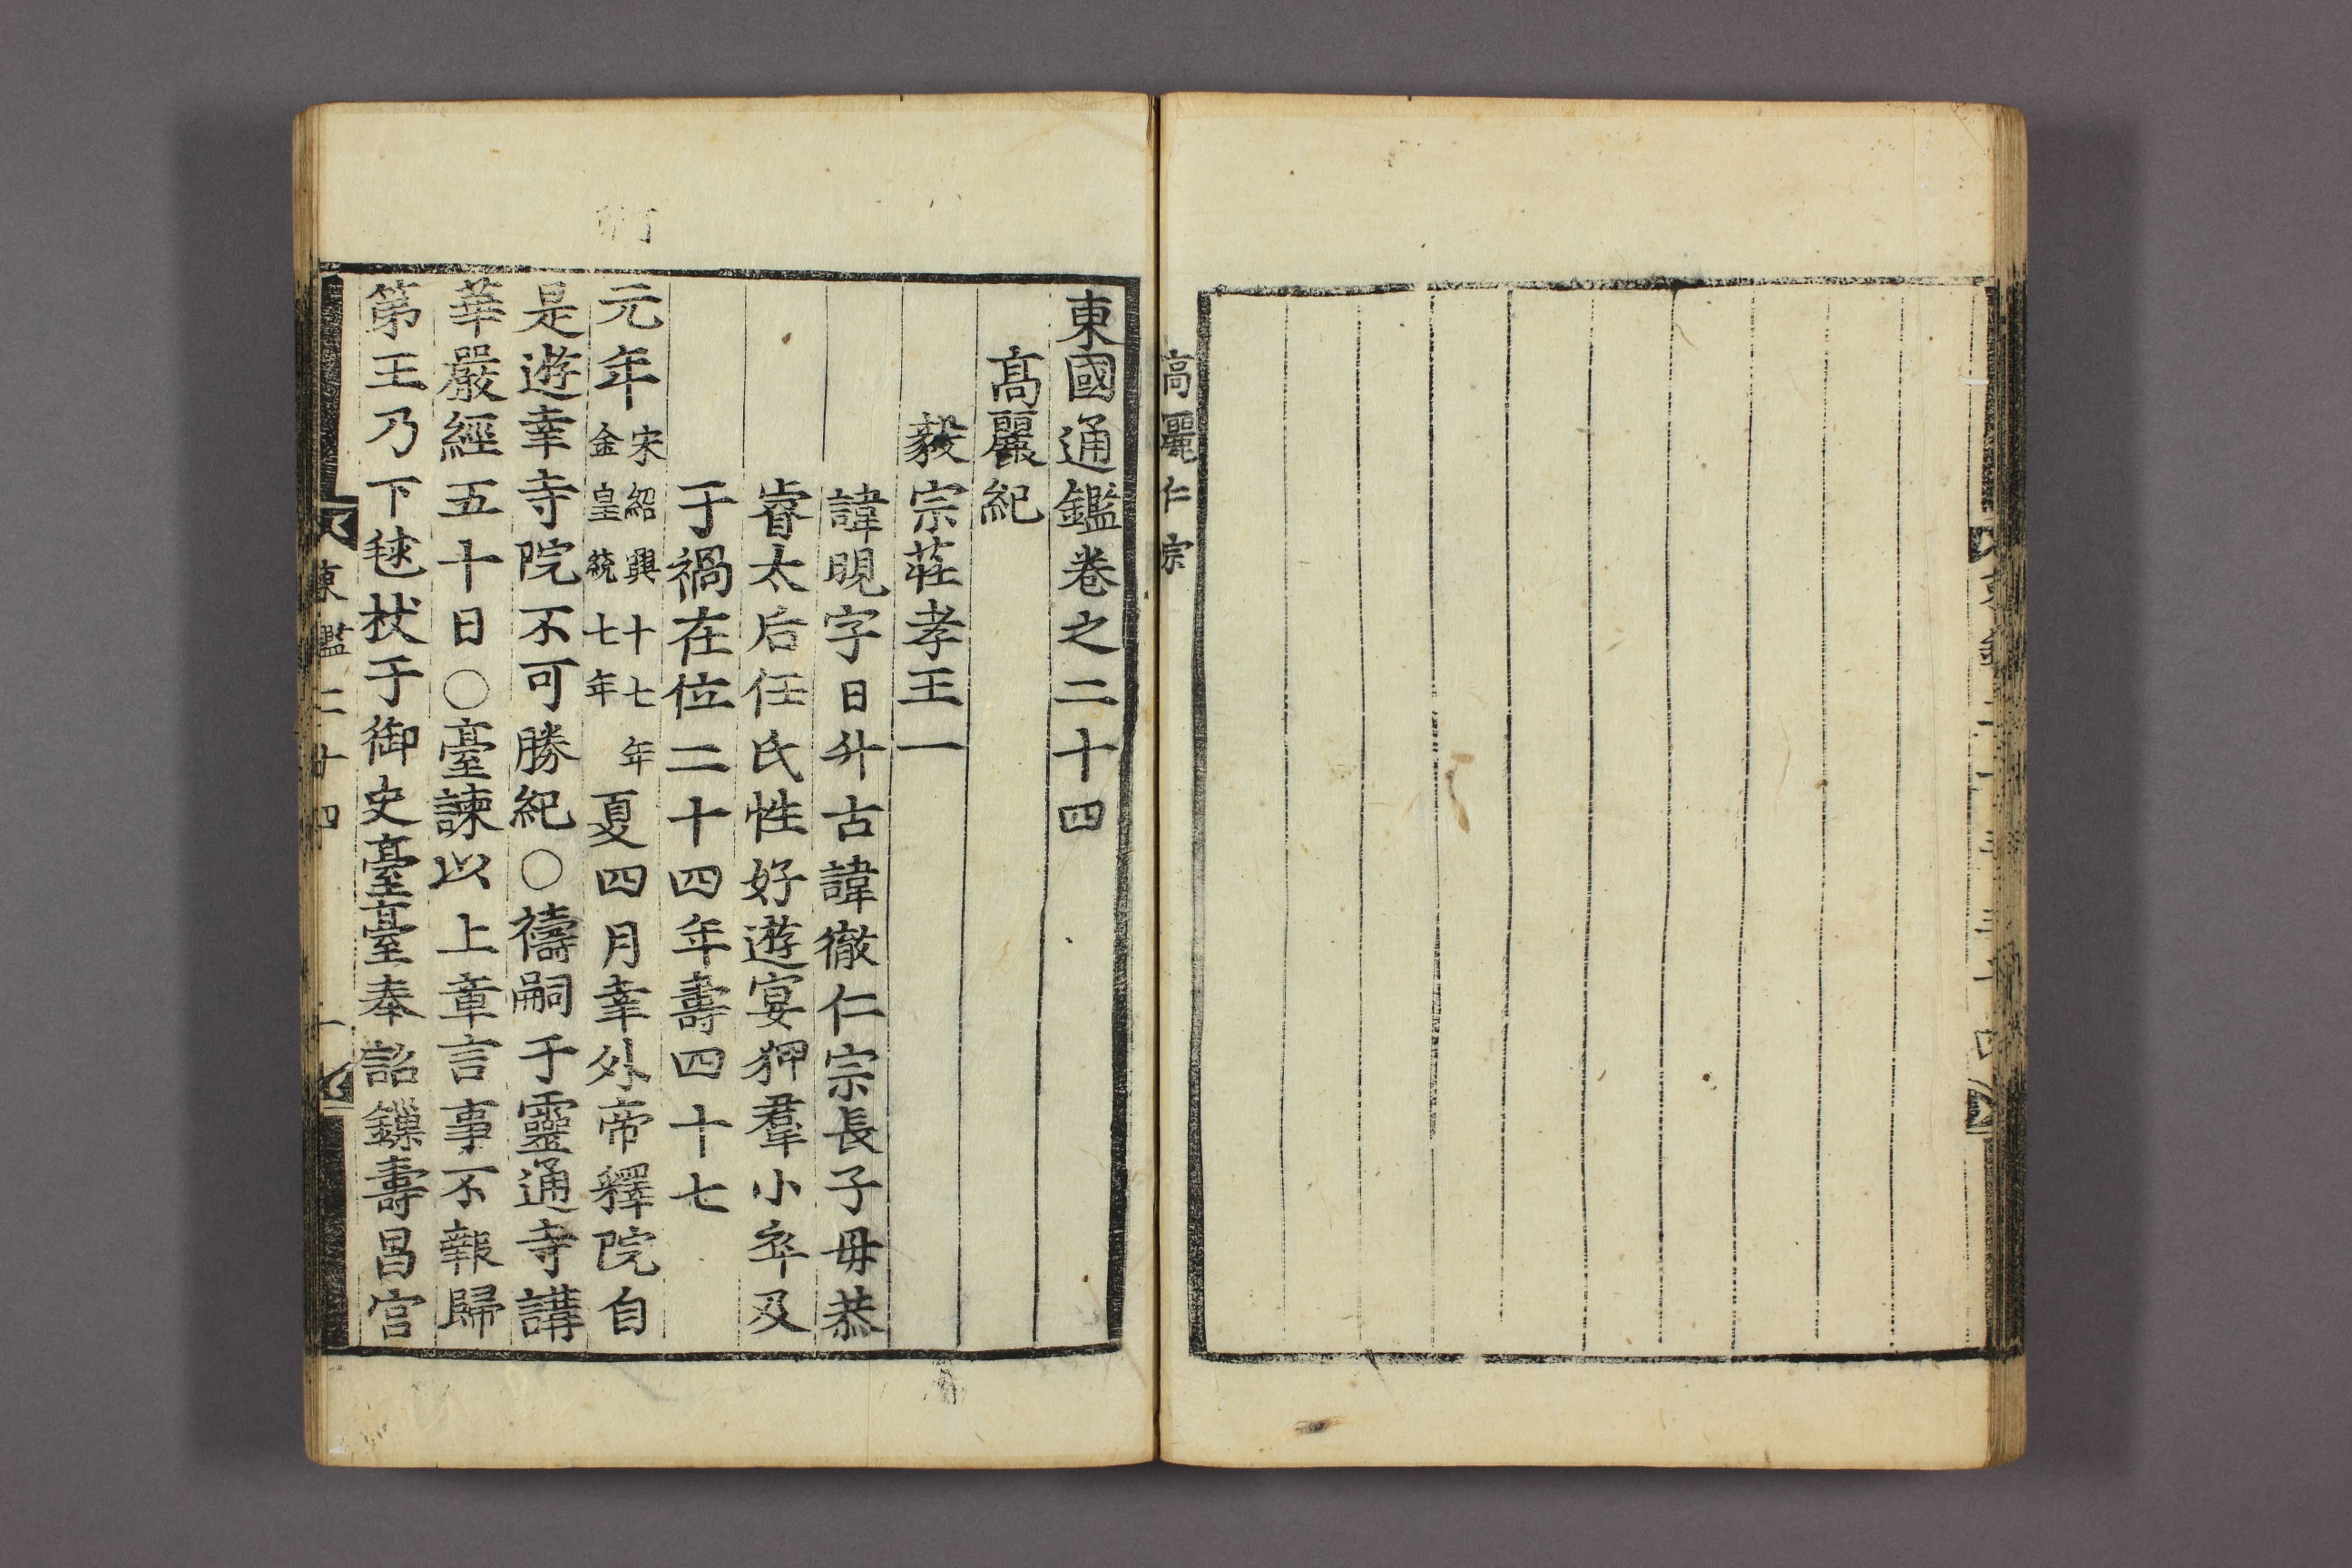 高麗仁宗
東國通鑑卷之二十四
高麗紀
毅宗莊孝王一
諱晛字日升古諱徹仁宗長子毋恭
睿太后任氏性好遊宴狎羣小卒及
于禍在位二十四年壽四十七
元年宋紹興十七年金皇統七年夏四月幸外帝釋院自
是遊幸寺院不可勝紀○禱嗣于靈通寺講
華嚴經五十日○臺諫以上章言事不報歸
第王乃下毬杖于御史臺臺奉詔鏁壽昌宮
東鑑二十四